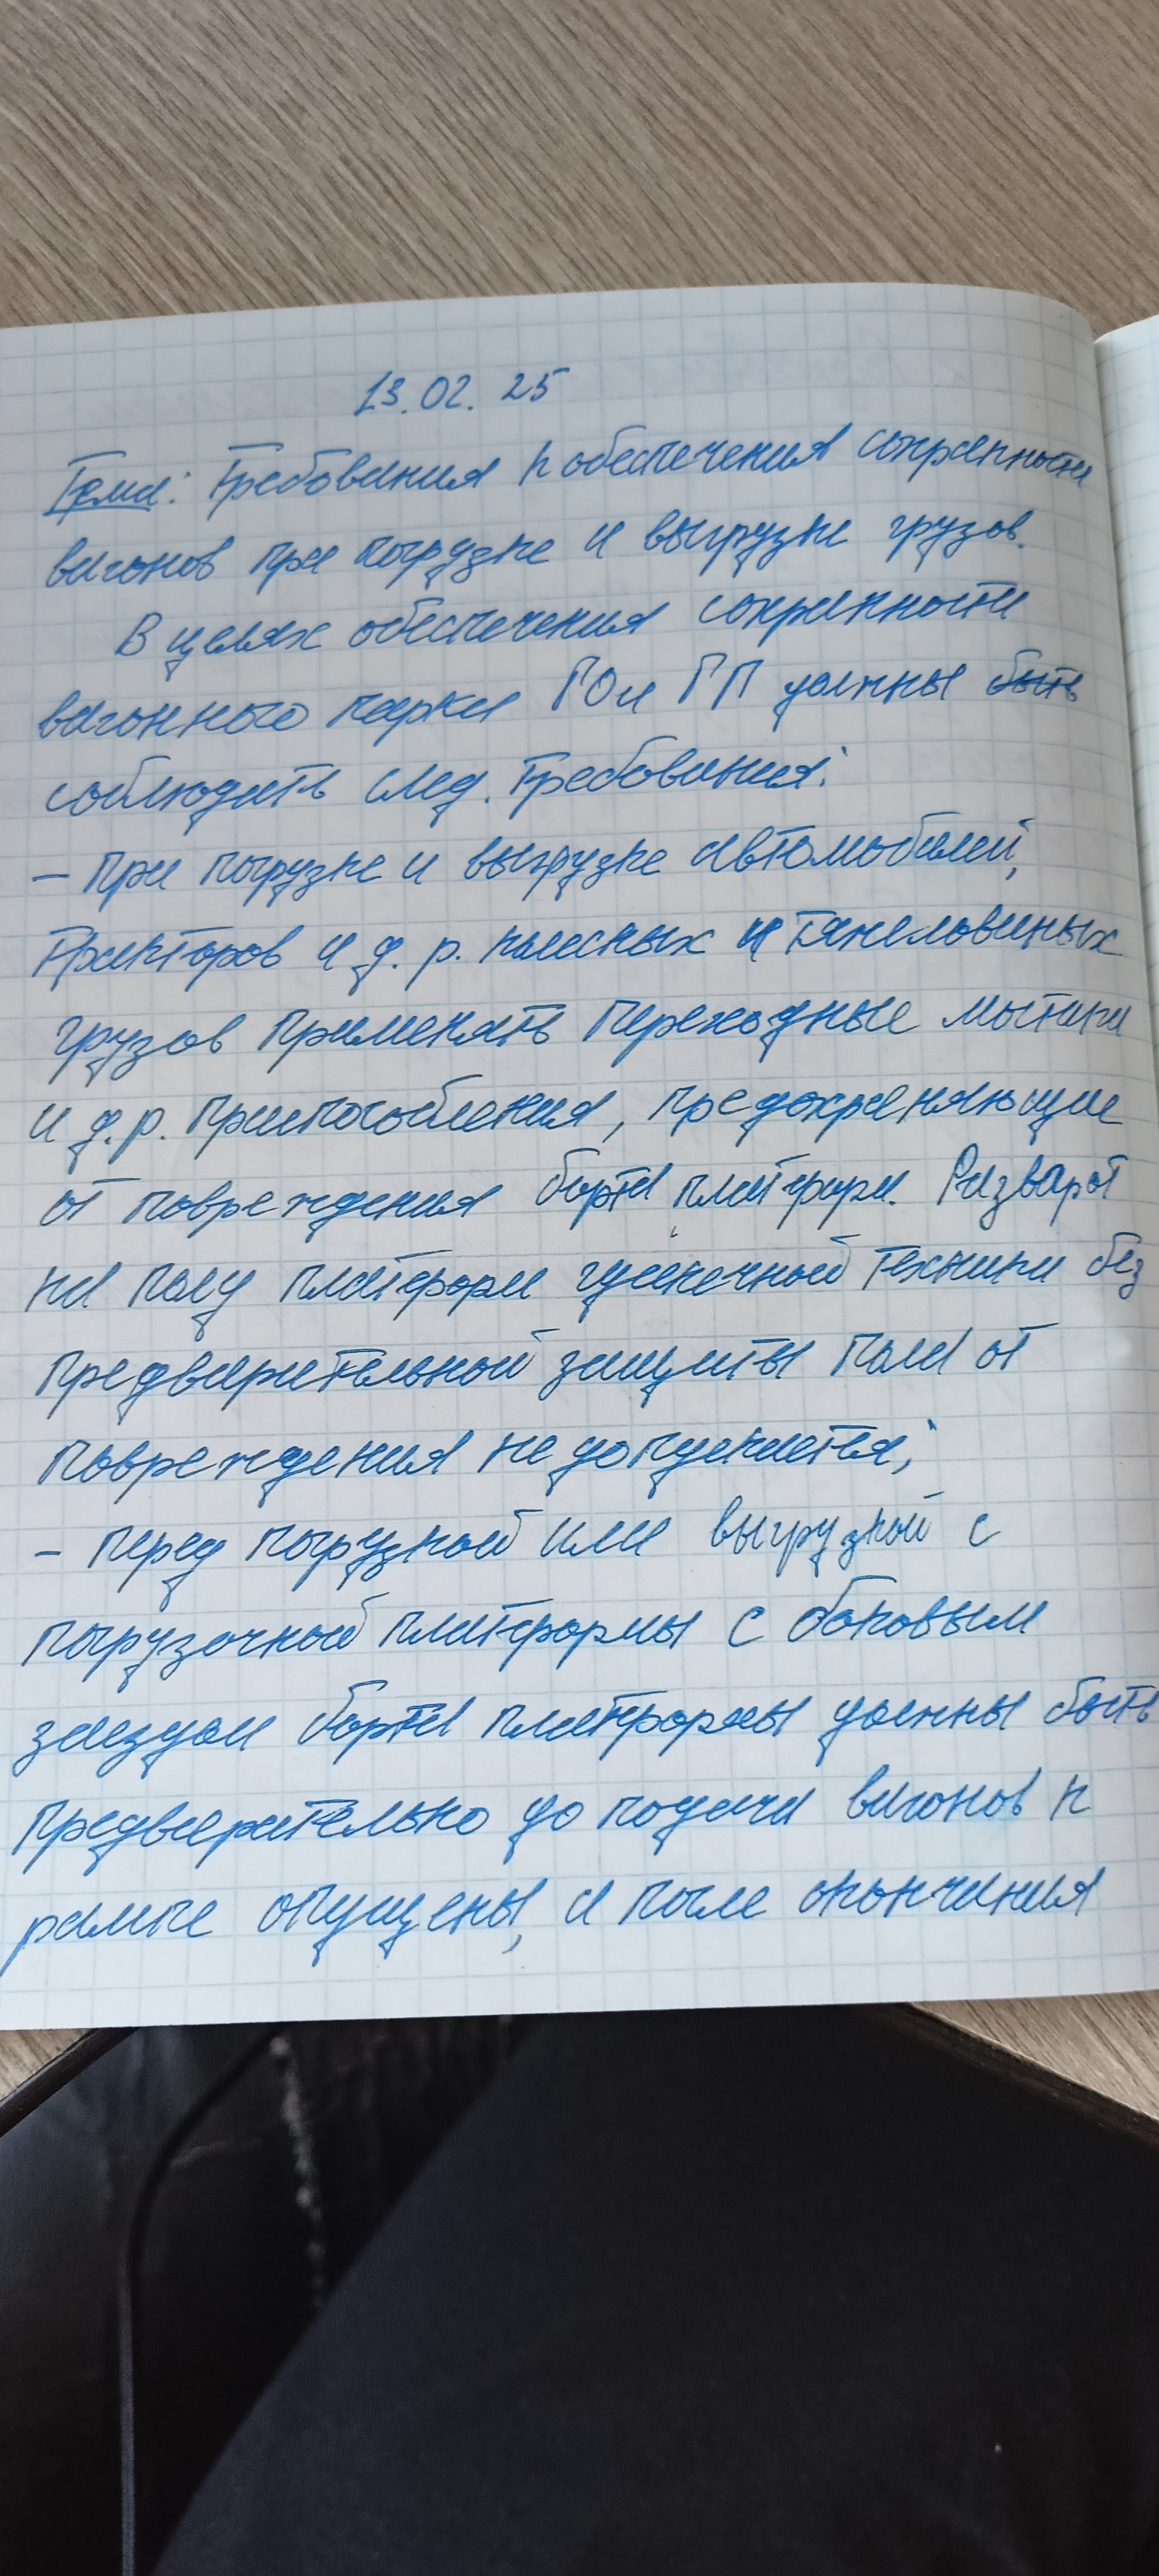 13.02.25
Тема: Требования к обеспечения сохранности
вагонов при погрузке и выгрузке грузов.
В целях обеспечения сохранности
вагонного парка ГО и ГП должны быть
соблюдать след. требования:
– при погрузке и выгрузке автомобилей,
тракторов и д.р. колесных и тяжеловесных
грузов применять переходные мостики
и д.р. приспособления, предохраняющие
от повреждения борта платформ. Разварот
на полу платформ гусенечной техники без
предварительной защиты пола от
повреждения не допускается;
– перед погрузкой или выгрузкой с
погрузочной платформы с боковым
заездом борта платформы должны быть
предварительно до подачи вагонов к
рампе опущены, а после окончания